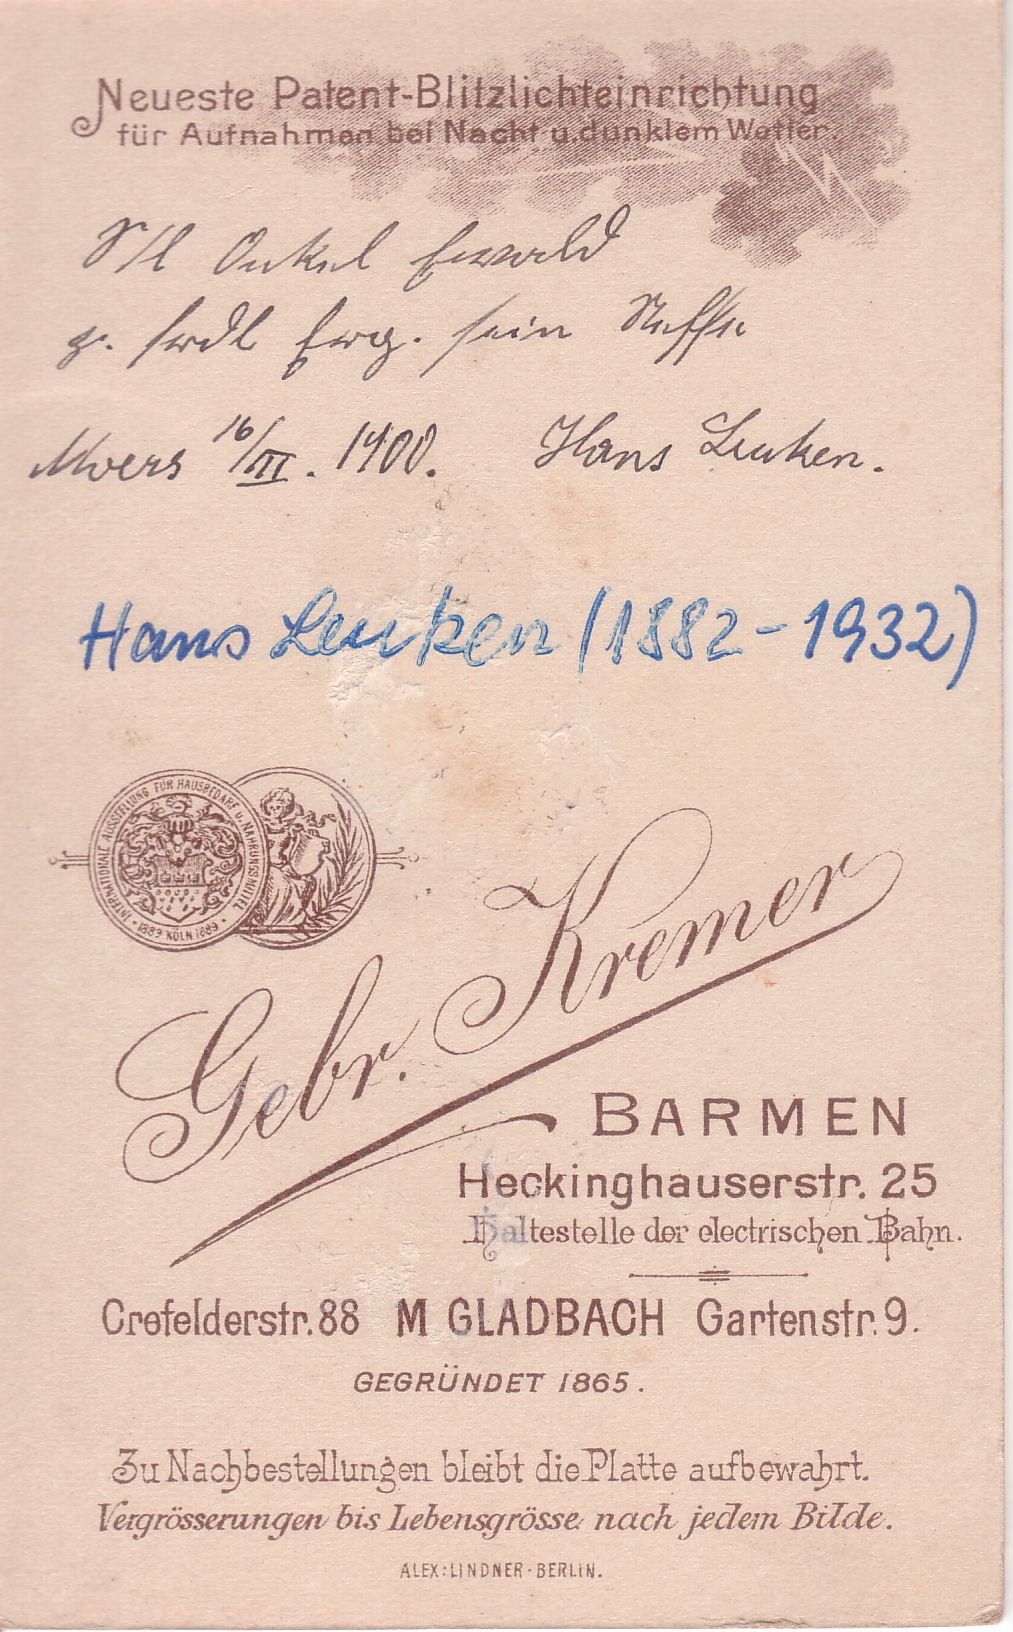 Neueste Patent-Blitzlichteinrichtung
für Aufnahmen bei Nacht u. dunklem Wetter.
Onkel Ewald
z. frdl Erg. sein Neffe
Moers 16/III. 1900. Hans Leuken.
Hans Leuken (1882-1932)
INTERNATIONALE AUSSTELLUNG FÜR HAUSBEDARF U. NAHRUNGSMITTEL
1889 KÖLN 1889
Gebr. Kremer
BARMEN
Heckinghauserstr. 25
Haltestelle der electrischen Bahn.
Crefelderstr. 88 M GLADBACH Gartenstr. 9.
GEGRÜNDET 1865.
Zu Nachbestellungen bleibt die Platte aufbewahrt.
Vergrösserungen bis Lebensgrösse nach jedem Bilde.
ALEX: LINDNER · BERLIN.